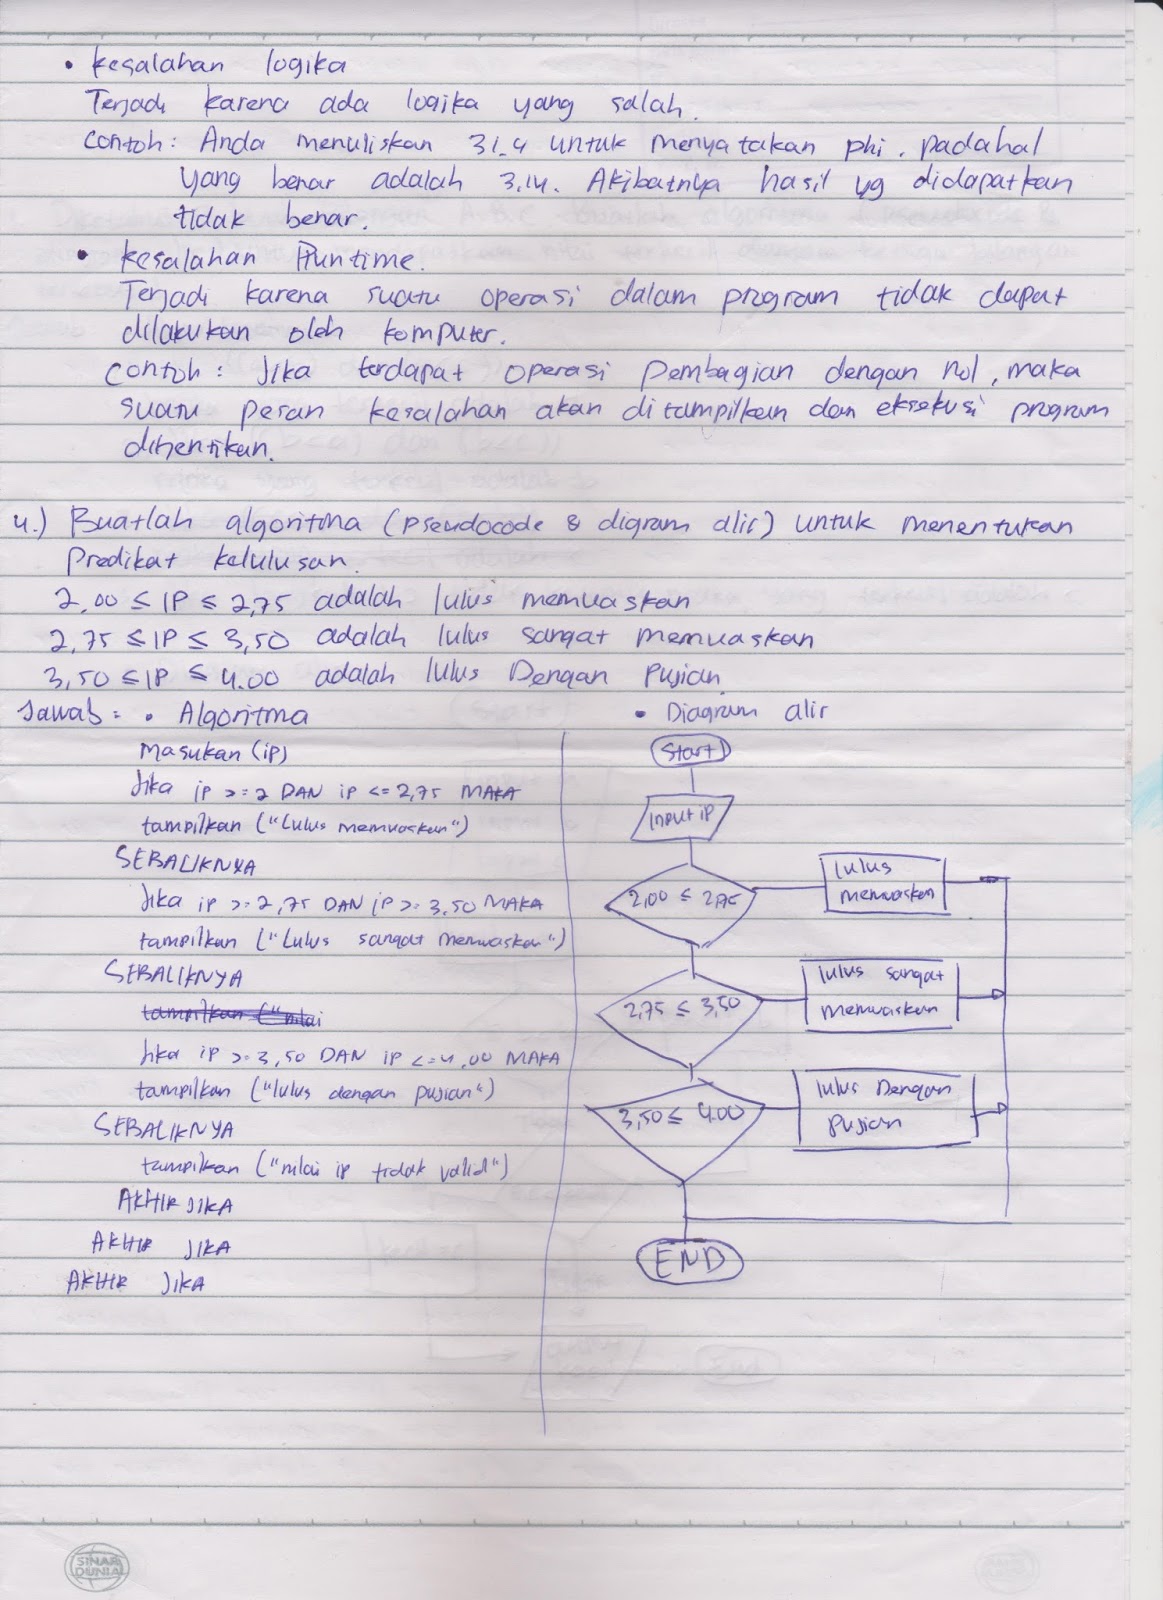 • kesalahan logika
Terjadi karena ada logika yang salah.
Contoh: Anda menuliskan 31.4 untuk menyatakan phi. padahal
yang benar adalah 3.14. Akibatnya hasil yg didapatkan
tidak benar.
• kesalahan Runtime.
Terjadi karena suatu operasi dalam program tidak dapat
dilakukan oleh komputer.
Contoh: Jika terdapat operasi pembagian dengan nol, maka
suatu pesan kesalahan akan ditampilkan dan eksekusi program
dihentikan.
4.) Buatlah algoritma (pseudocode & digram alir) untuk menentukan
Predikat kelulusan.
2,00 ≤ IP ≤ 2,75 adalah lulus memuaskan
2,75 ≤ IP ≤ 3,50 adalah lulus sangat memuaskan
3,50 ≤ IP ≤ 4.00 adalah lulus Dengan Pujian
Jawab: • Algoritma
Masukan (ip)
Jika ip >= 2 DAN ip <= 2,75 MAKA
tampilkan ("Lulus memuaskan")
SEBALIKNYA
Jika ip >= 2,75 DAN ip >= 3,50 MAKA
tampilkan ("Lulus sangat memuaskan")
SEBALIKNYA
tampilkan ("nilai
Jika ip >= 3,50 DAN ip <= 4,00 MAKA
tampilkan ("lulus dengan pujian")
SEBALIKNYA
tampilkan ("nilai ip tidak valid")
AKHIR JIKA
AKHIR JIKA
AKHIR JIKA
• Diagram alir
Start
Input iP
2,00 ≤ 2,75
lulus
memuaskan
2,75 ≤ 3,50
lulus sangat
memuaskan
3,50 ≤ 4.00
lulus Dengan
pujian
END
SINAR
DUNIA